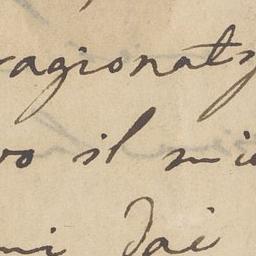 ragionat
vo il mio
mi dai